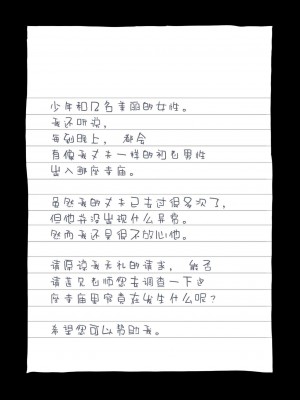 少年和12名美丽的女性。
我还听说，
每到晚上，都会
有像我丈夫一样的初老男性
出入那座寺庙。
虽然我的丈夫已去过很多次了，
但他并没出现什么异常。
然而我还是很不放心他。
请原谅我无礼的请求，能否
请莲见老师您去调查一下这
座寺庙里究竟在发生什么呢？
希望您可以帮助我。